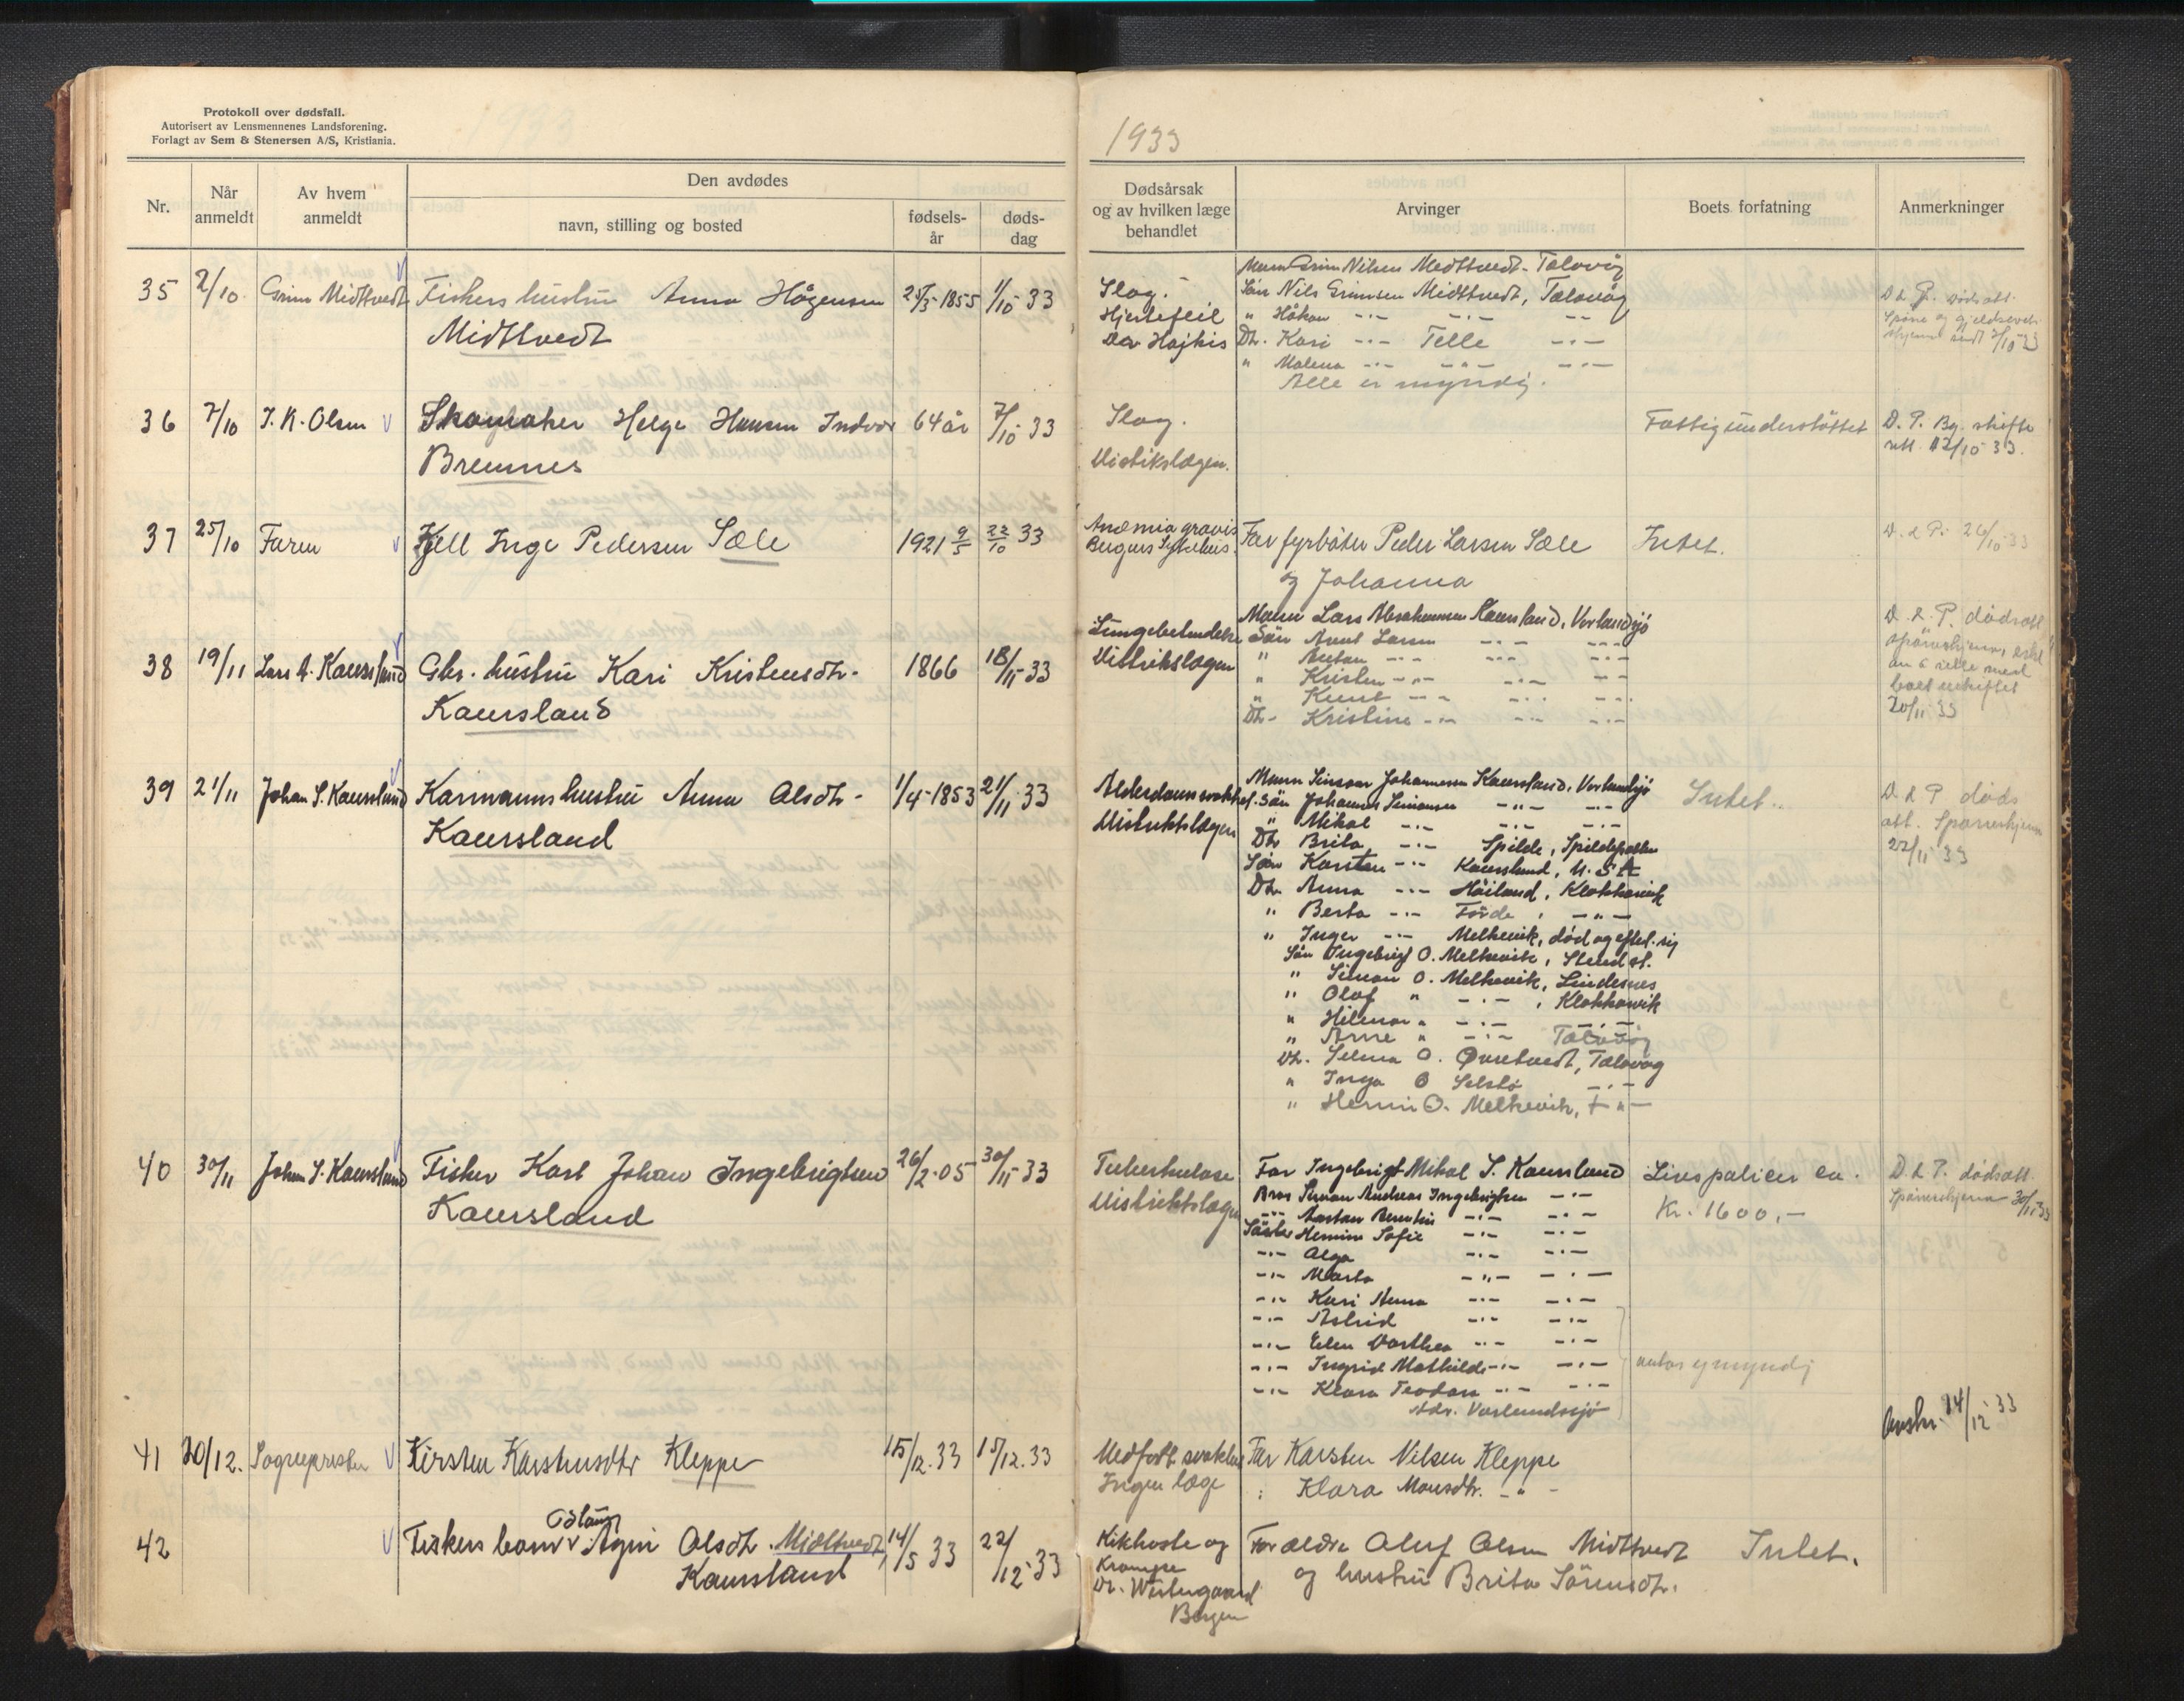 Protokoll over dødsfall.
Autorisert av Lensmennenes Landsforening.
Forlagt av Sem & Stenersen A/S, Kristiania.
1933
Nr.
Når anmeldt
Av hvem anmeldt
Den avdødes
navn, stilling og bosted
fødsels-år
døds-dag
Dødsårsak og av hvilken læge behandlet
Arvinger
Boets forfatning
Anmerkninger
35 2/10 Grim Midttvedt Fiskers hustru Anna Hågensen 25/3-1855 1/10-33
Midttvedt
Slag.
Hjertefeil
Mann Grim Nilsen Midttvedt - Telavåg
Sön Nils Grimsen Midttvedt, Telavåg
" Håkon -"- -"- -"-
Dtr. Kari -"- Telle -"-
" Malena -"- -"- -"-
Alle er myndig.
D. & P. dödsatt.
2/10-33
36 7/10 J. K. Olsen Skomaker Helge Hansen Indvær 64 år 7/10-33
Bremnes
Slag.
Distikslægen.
Fattigunderstöttet
D. P. Bg. skifte
rett. 12/10-33.
37 25/10 Faren Kjell Inge Pedersen Sæle 1921 9/5 22/10 33
Anæmia gravis
Bergens Sykehus.
Far fyrbøter Peder Larsen Sæle
og Johanna
Intet.
D. & P. 26/10-33
38 19/11 Lars A. Kaursland Gbr. hustru Kari Kristensdtr. 1866 18/11-33
Kaursland
Lungebetendelse
Distrikslægen
Mann Lars Abrahamsen Kaursland, Vorlandsjö
Sön Arent Larsen -"- -"-
" Anton -"- -"- -"-
" Kristen -"- -"- -"-
" Knut -"- -"- -"-
Dtr. Kristine -"- -"- -"-
D. & P. dödsatt
20/11-33
39 21/11 Johan S. Kaursland Karmanns hustru Anna Olsdtr. 1/4-1853 21/11-33
Kaursland
Alderdomssvakhet.
Distriktslægen
Mann Simon Johannessen Kaursland, Vorlandsjö
Sön Johannes Simonsen -"- -"-
" Mikal -"- -"- -"-
Dtr. Brita -"- Spilde, Spildepollen
Sön Karsten -"- Kaursland, U.S.A.
Dtr. Anna -"- Höiland, Klokkarvik
" Berta -"- Förde, -"-
" Inger -"- Melkevik, död og efterl. sig
Sön Ingebrigt O. Melkevik,
" Simon O. Melkevik, Lindesnes
" Olaf " -"- , Klokkarvik
" Hilmar " -"- -"-
" Arne " -"- Telavåg
Dtr. Selma O. Øvretvedt, Telavåg
" Inga O Selstö -"-
" Henni O. Melkevik, -"-
Intet.
D. & P döds
att. Spörreskjema
22/11-33
40 30/11 Johan S. Kaursland Fisker Karl Johan Ingebrigtsen 26/2-05 30/11-33
Kaursland
Tuberkulose
Distriktslægen
Far Ingebrigt Mikal S. Kaursland
Bror Simon Andreas Ingebrigtsen -"-
-"- Anton Berentin -"- -"-
Söster Hemine Sofie -"- -"-
-"- Olga -"- -"-
-"- Marta -"- -"-
-"- Kari Anna -"- -"-
-"- Astrid -"- -"-
-"- Elen Dorthea -"- -"-
-"- Ingrid Mathilde -"- -"-
-"- Klara Teodora -"- -"-
Adr. Vorlandsjö
umyndig
Livspolicer ca.
Kr. 1600,-
D. & P. dödsatt.
Spörreskjema 30/11-33
14/12-33
41 20/12. Sogneprsten Kirsten Karstensdtr Kleppe 15/12.33 15/12.33
Medfödt svakhet
Ingen læge
Far Karsten Nilsen Kleppe
: Klara Monsdtr. -"-
42 Fiskers barn Aslaug Agni Olsdtr. Midttvedt, 14/5 33 22/12-33
Kaursland
Kikhoste og
Krampe
Dr. Westergaard
Bergen
Forældre Oluf Olsen Midttvedt
og hustru Brita Sörensdtr.
Intet.